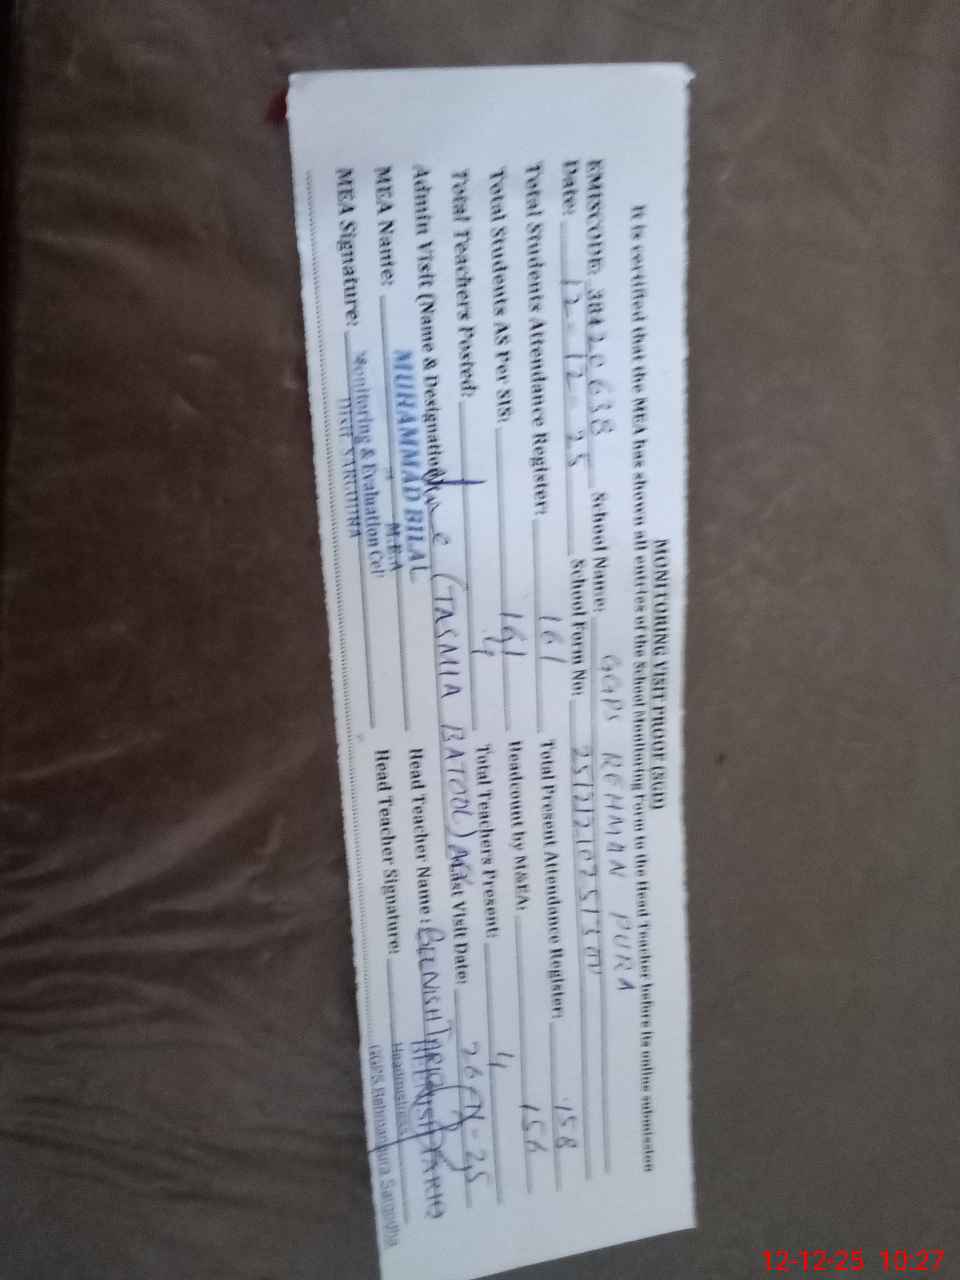 MONITORING VISIT PROOF (SGD)
It is certified that the MEA has shown all entries of the School Monitoring Form to the Head Teacher before its online submission
EMISCODE: 38420638 School Name: GGPS REHMAN PURA
Date: 12-12-25 School Form No:
Total Students Attendance Register: 161 Total Present Attendance Register: 158
Total Students AS Per SIS: 161 Headcount by M&EA: 156
Total Teachers Posted: 4 Total Teachers Present: 4
Admin Visit (Name & Designation) (TASMIA BATOOL) Last Visit Date: 26-25
MEA Name: MUHAMMAD BILAL Head Teacher Name: BEENISH TARIQ
M.E.A BEENISH TARIQ
MEA Signature: Monitoring & Evaluation Cell Head Teacher Signature: Headmistress
Distt SARGODHA GGPS Rehmanpura Sargodha
12-12-25 10:27